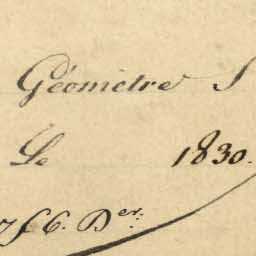 Géomètre S
Le 1830.
7 f 6. D er.